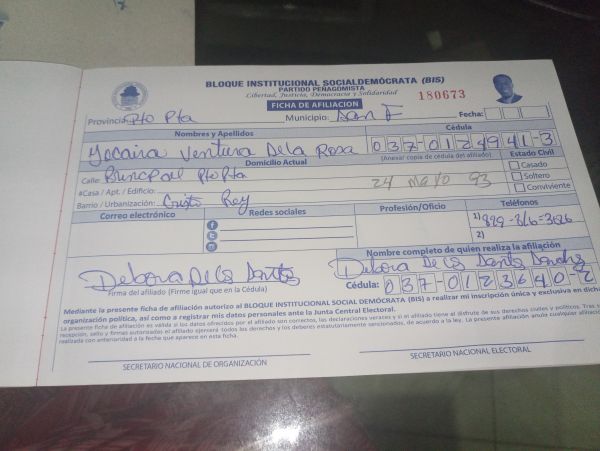 BLOQUE INSTITUCIONAL SOCIALDEMÓCRATA (BIS)
PARTIDO PEÑAGOMISTA
Libertad, Justicia, Democracia y Solidaridad
180673
FICHA DE AFILIACION
Provincia: Pto Pta Municipio: San F Fecha:
Nombres y Apellidos Cédula
Yocaira Ventura De La Rosa 037-0124941-3
Domicilio Actual (Anexar copia de cédula del afiliado) Estado Civil
Calle: Pto Pta Casado
#Casa / Apt. / Edificio: 24 mayo 93 Soltero
Barrio / Urbanización: Cristo Rey Conviviente
Correo electrónico Redes sociales Profesión/Oficio Teléfonos
1) 829-866-3626
2)
Nombre completo de quien realiza la afiliación
Debora De Los Santos Debora De Los Santos
Firma del afiliado (Firme igual que en la Cédula) Cédula: 037-0123640-2
Mediante la presente ficha de afiliación autorizo al BLOQUE INSTITUCIONAL SOCIAL DEMÓCRATA (BIS) a realizar mi inscripción única y exclusiva en dicha
organización política, así como a registrar mis datos personales ante la Junta Central Electoral.
La presente ficha de afiliación es válida si los datos ofrecidos por el afiliado son correctos, las declaraciones veraces y si el afiliado tiene al disfrute de sus derechos civiles y políticos. Tras su
recepción, sello y firmas autorizadas el afiliado ejercerá todos los derechos y los deberes estatutariamente sancionados, de acuerdo a la ley. La presente afiliación anula cualquier afiliación
realizada con anterioridad a la fecha que aparece en esta ficha.
SECRETARIO NACIONAL DE ORGANIZACIÓN SECRETARIO NACIONAL ELECTORAL